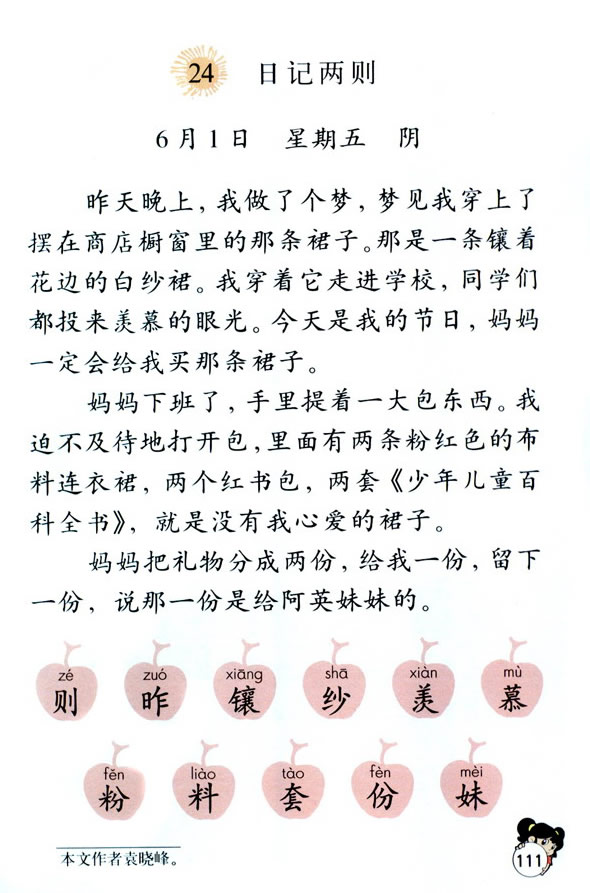 24 日记两则
6月1日 星期五 阴
昨天晚上，我做了个梦，梦见我穿上了
摆在商店橱窗里的那条裙子。那是一条镶着
花边的白纱裙。我穿着它走进学校，同学们
都投来羡慕的眼光。今天是我的节日，妈妈
一定会给我买那条裙子。
妈妈下班了，手里提着一大包东西。我
迫不及待地打开包，里面有两条粉红色的布
料连衣裙，两个红书包，两套《少年儿童百
科全书》，就是没有我心爱的裙子。
妈妈把礼物分成两份，给我一份，留下
一份，说那一份是给阿英妹妹的。
zé zuó xiāng shā xiàn mù
则 昨 镶 纱 羡 慕
fěn liào tào fèn mèi
粉 料 套 份 妹
本文作者袁晓峰。
111